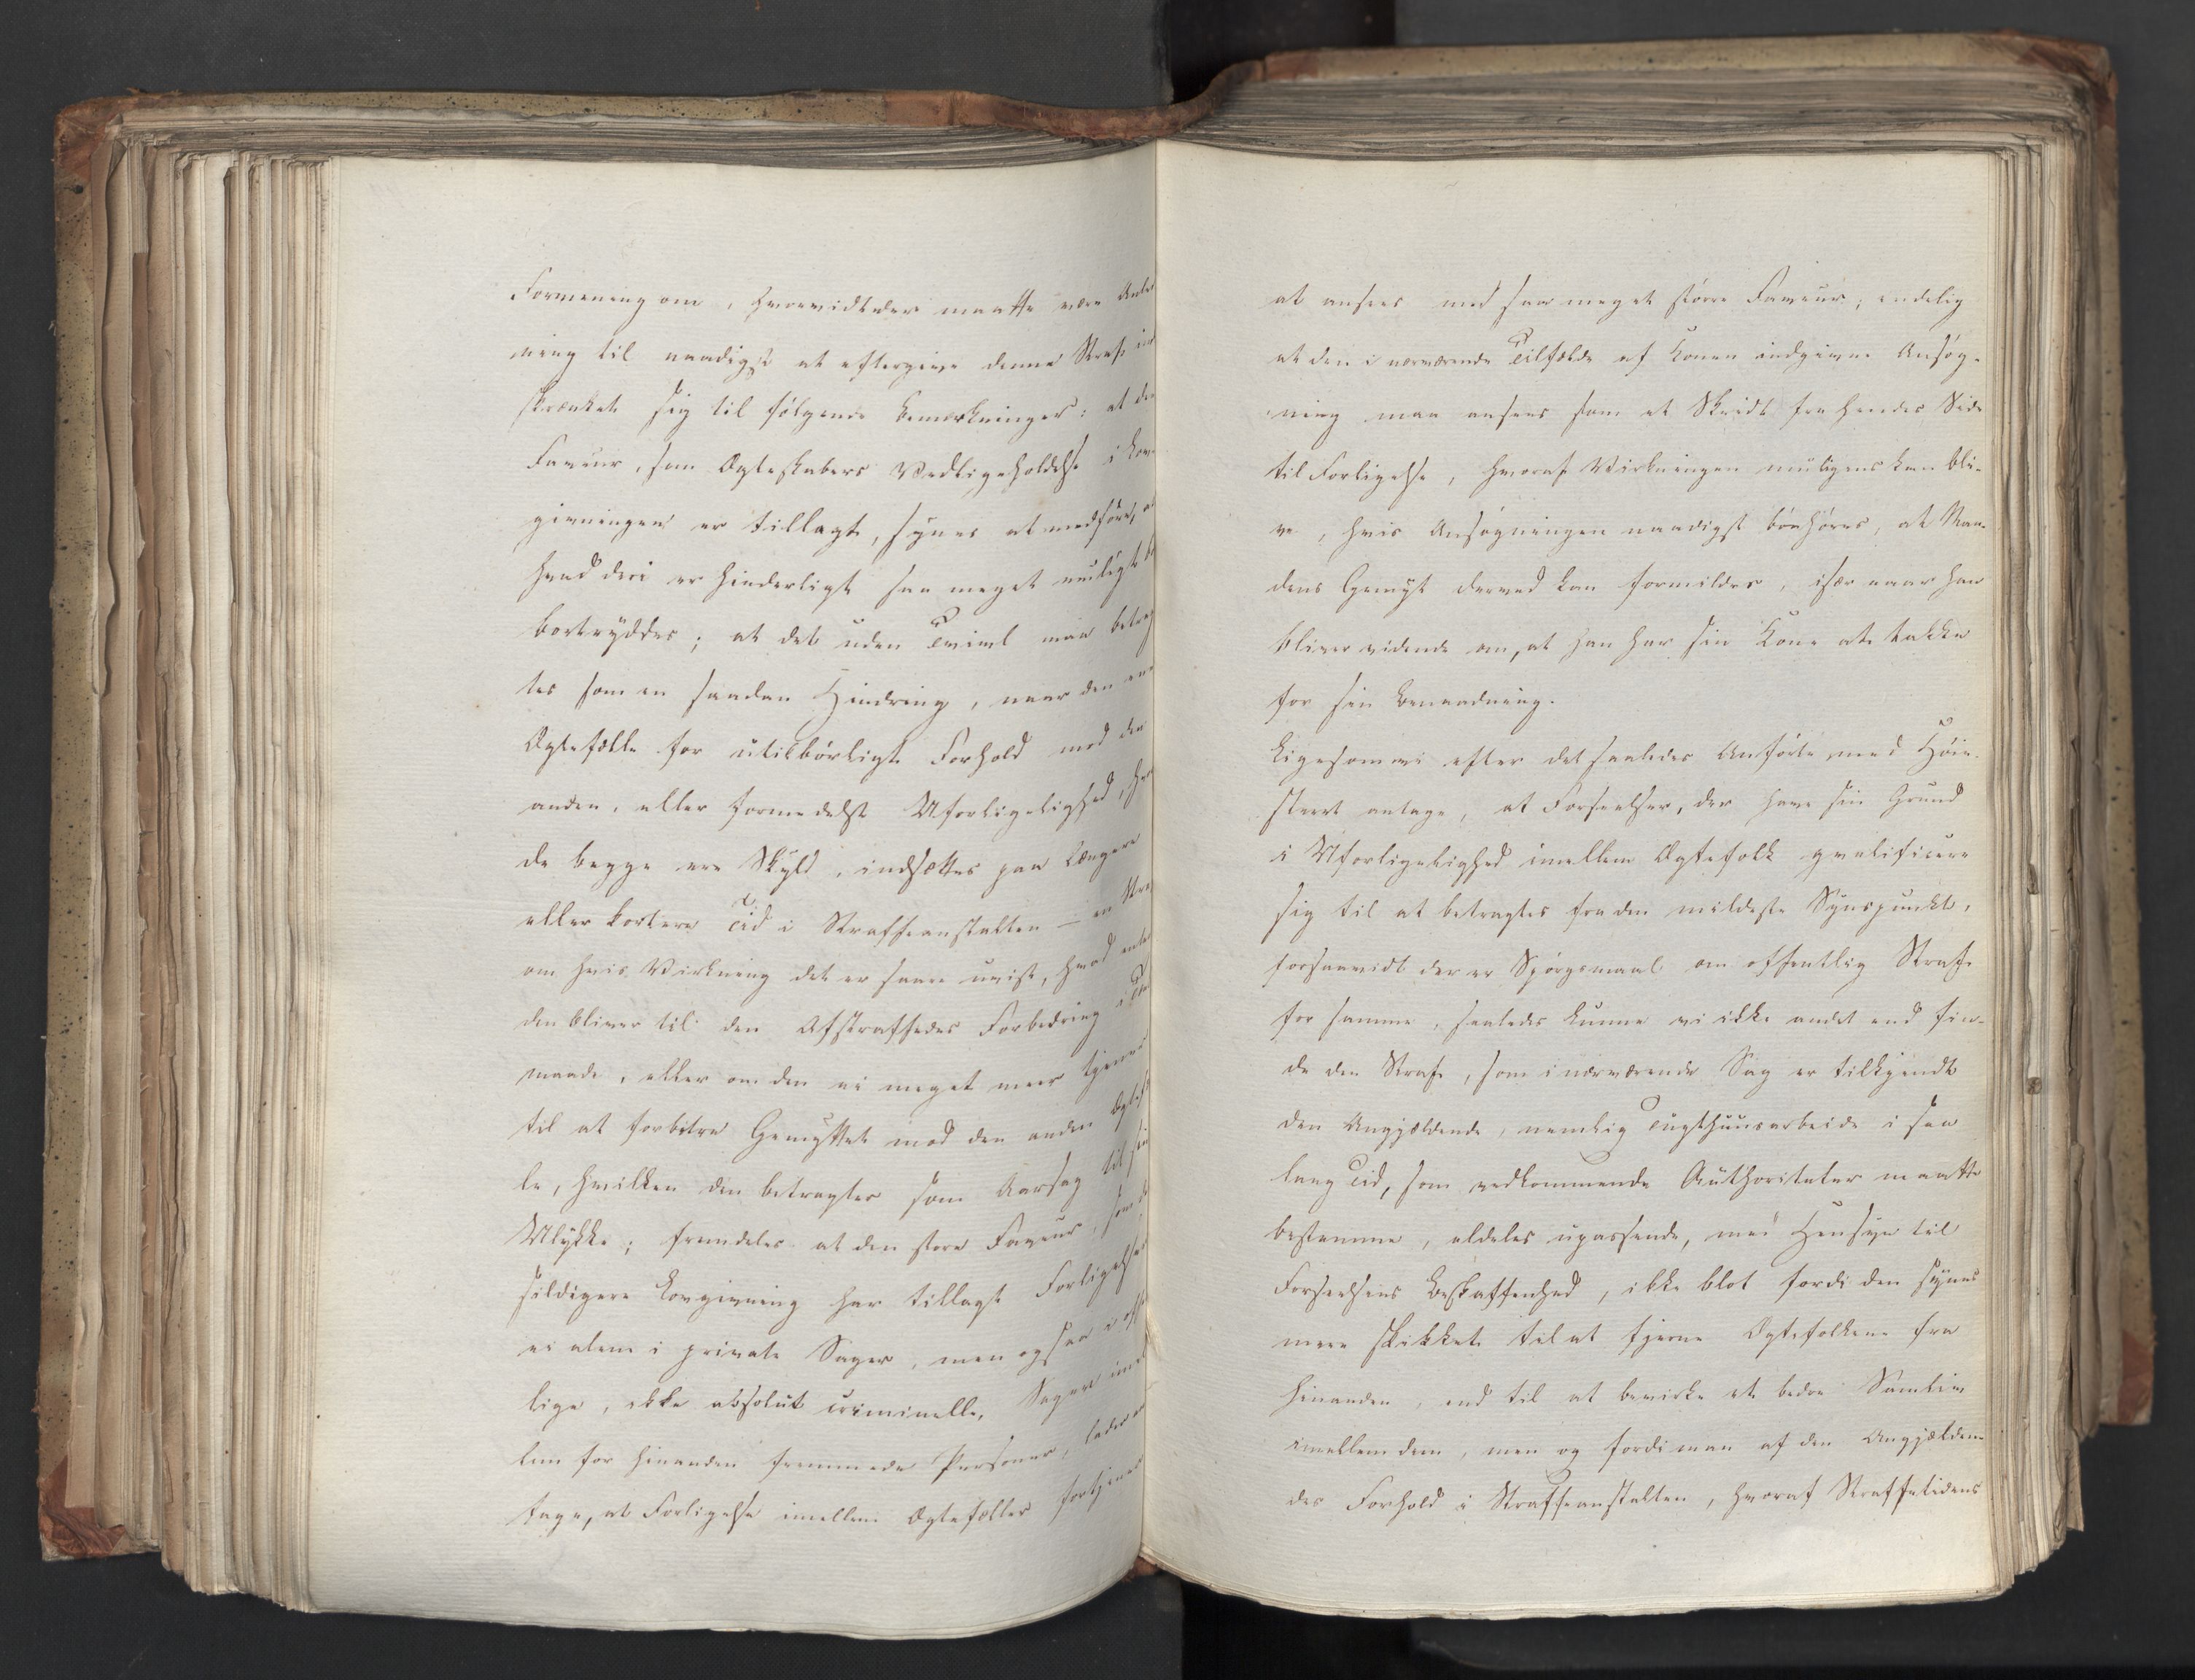 Formening om, hvorvidt der maatte være Anled
ning til naadigst at eftergive denne Straf ind
skrænket sig til følgende Bemærkninger: at den
Faveur, som Ægteskabers Vedligeholdelse i Lov-
givningen er tillagt, synes at medføre, at
hvad deri er hinderligt saa meget muligt bø
bortryddes; at det uden Tvivl maa betrag
tes som en saadan Hindring, naar den ene
Ægtefælle for utilbørligt Forhold mod den
anden, eller formedelst Uforligelighed, hvor
de begge ere Skyld, indsættes paa længere
eller kortere Tid i Straffeanstalten — en Straf
om hvis Virkning det er saare uvist, hvad enten
den bliver til den Afstraffedes Forbedring i
maade, eller om den ei meget meer tjener
til at forbitre Gemyttet mod den anden Ægtefæl
le, hvilken den betragter som Aarsag til sin
Ulykke; fremdeles at den store Faveur, som d
sildigere Lovgivning har tillagt Forligelser
ei alene i private Sager, men ogsaa i offent
lige, ikke absolut criminelle, Sager imel
lem for hinanden fremmede Personer, lader an
tage, at Forligelse imellem Ægtefæller fortjener
at ansees med saa meget større Faveur; endelig
at den i nærværende Tilfælde af Konen indgivne Ansøg-
ning maa ansees som et Skridt fra hendes Side
til Forligelse, hvoraf Virkningen muligens kan bli-
ve, hvis Ansøgningen naadigst bønhøres, at Man-
dens Gemyt derved kan formildes, især naar han
bliver vidende om, at han har sin Kone at takke
for sin Benaadning.
Ligesom vi efter det saaledes Anførte med Høie-
steret antage, at Forseelser, der have sin Grund
i Uforligelighed imellem Ægtefolk qvalificere
sig til at betragtes fra den mildeste Synspunkt,
forsaavidt der er Spørgsmaal om offentlig Straf
for samme, saaledes kunne vi ikke andet end fin-
de den Straf, som i nærværende Sag er tilkjendt
den Angjældende, nemlig Tugthuusarbeide i saa
lang Tid, som vedkommende Authoriteter maatte
bestemme, aldeles upassende, med Hensyn til
Forseelsens Beskaffenhed, ikke blot fordi den synes
mere skikket til at fjerne Ægtefolkene fra
hinanden, end til at bevirke et bedre Samliv
imellem dem, men og fordi man af den Angjælden-
des Forhold i Straffeanstalten, hvoraf Straffetidens